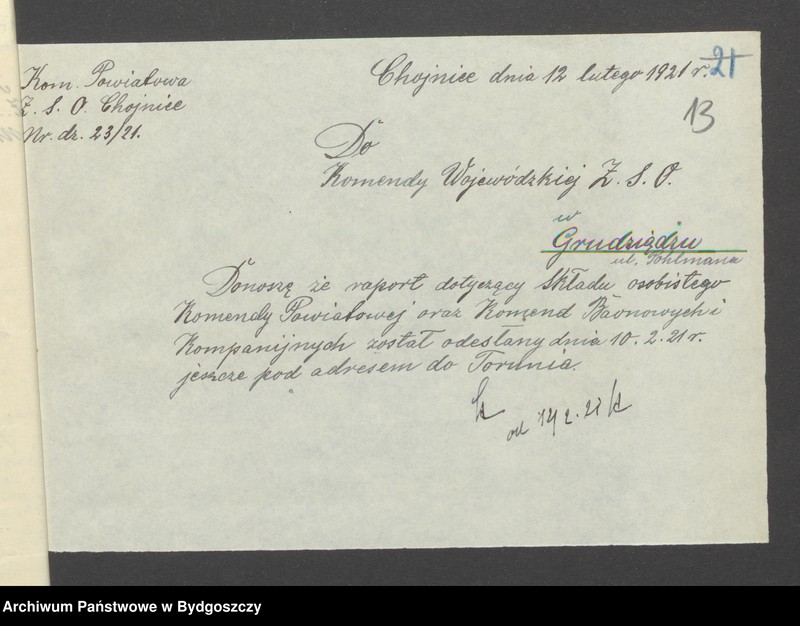 Kom. Powiatowa
Z. S. O. Chojnice
Nr. dz. 23/21.
Chojnice dnia 12 lutego 1921 r.
21
13
Do
Komendy Wojewódzkiej Z. S. O.
w
Grudziądzu
ul. Pohlmana
Donoszę że raport dotyczący składu osobistego
Komendy Powiatowej oraz Komend Baonowych i
Kompanijnych został odesłany dnia 10. 2. 21 r.
jeszcze pod adresem do Torunia.
Archiwum Państwowe w Bydgoszczy